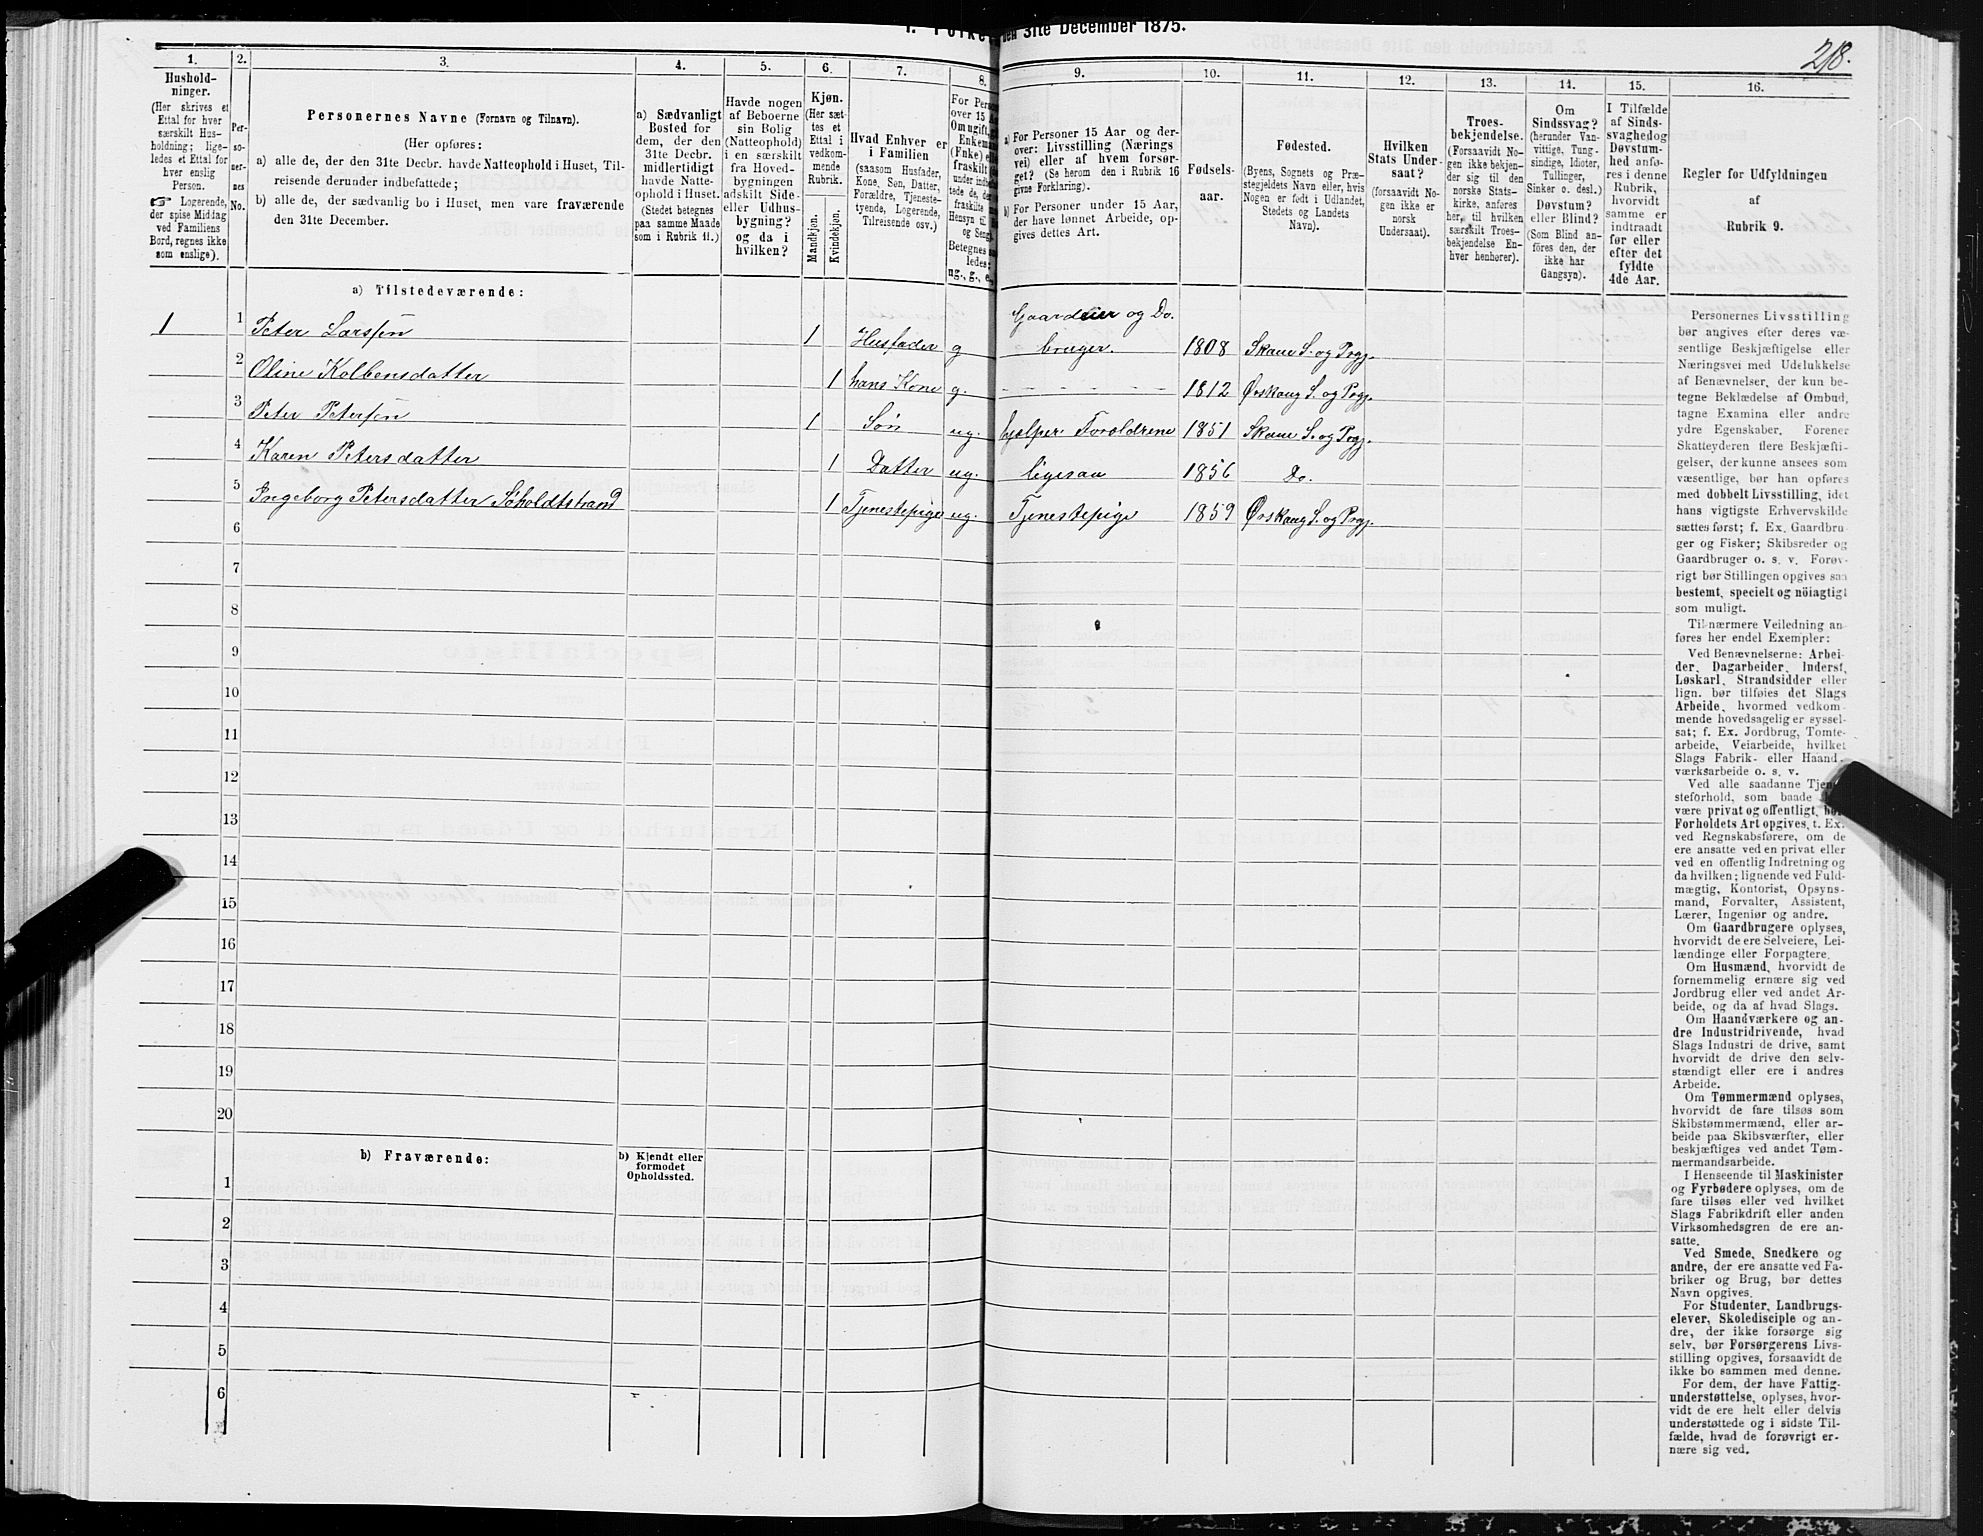 den 31te December 1875.
218.
1.
2.
3.
4.
5.
6.
7.
8.
9.
10.
11.
12.
13.
14.
15.
16.
Hushold-
ninger.
(Her skrives et
Ettal for hver
særskilt Hus-
holdning; lige-
ledes et Ettal for
hver enslig
Person.
☞ Logerende,
der spise Middag
ved Familiens
Bord, regnes ikke
som enslige).
Per-
so-
ner-
nes
No.
Personernes Navne (Fornavn og Tilnavn).
(Her opføres:
a) alle de, der den 31te Decbr. havde Natteophold i Huset, Til-
reisende derunder indbefattede;
b) alle de, der sædvanlig bo i Huset, men vare fraværende
den 31te December.
a) Sædvanligt
Bosted for
dem, der den
31te Decbr.
midlertidigt
havde Natte-
ophold i Huset.
(Stedet betegnes
paa samme Maade
som i Rubrik 11.)
Havde nogen
af Beboerne
sin Bolig
(Natteophold)
i en særskilt
fra Hoved-
bygningen
adskilt Side-
eller Udhus-
bygning?
og da i
hvilken?
Kjøn.
(Her sæt-
tes et
Ettal i
vedkom-
mende
Rubrik.
Mandkjøn.
Kvindekjøn.
Hvad Enhver er
i Familien
(saasom Husfader,
Kone, Søn, Datter,
Forældre, Tjeneste-
tyende, Logerende,
Tilreisende osv.)
a) For Personer 15 Aar og der-
over: Livsstilling (Nærings
vei) eller af hvem forsør-
get? (Se herom den i Rubrik 16
givne Forklaring).
b) For Personer under 15 Aar,
der have lønnet Arbeide, op-
gives dettes Art.
Fødsels-
aar.
Fødested.
(Byens, Sognets og Præ-
stegjeldets Navn eller, hvis
Nogen er født i Udlandet,
Stedets og Landets
Navn).
Hvilken
Stats Under-
saat?
(forsaavidt No-
gen ikke er
norsk
Undersaat).
Troes-
bekjendelse.
(Forsaavidt No-
gen ikke bekjen-
der sig til den
norske Stats-
kirke, anføres
her, til hvilken
særskilt Troes-
bekjendelse En-
hver henhører).
Om
Sindssvag?
(herunder Van-
vittige, Tung-
sindige, Idioter,
Tullinger,
Sinker o. desl.)
Døvstum?
eller Blind?
(Som Blind an-
føres den, der
ikke har
Gangsyn).
I Tilfælde
af Sinds-
svaghedog
Døvstum-
hed anfø-
res i denne
Rubrik,
hvorvidt
samme er
indtraadt
før eller
efter det
fyldte
4de Aar.
Regler for Udfyldningen
af
Rubrik 9.
a) Tilstedeværende:
1 1 Peter Larssen 1 Husfader g Gaardeier og Do.
bruger. 1808 Skaue S. og Prgj.
2 Oline Kolbensdatter 1 hans Kone g. 1812 Ørskaug S. og Prgj.
3 Peter Petersen 1 Søn ug. hjælper Forældrene 1851 Skaue S. og Prgj.
4 Karen Petersdatter 1 Datter ug. ligesaa 1856 Do.
5 Ingeborg Petersdatter Søholdtstrand 1 Tjenestepige ug. Tjenestepige 1859 Ørskaug S. og Prgj.
6
7
8
9
10
11
12
13
14
15
16
17
18
19
20
b) Fraværende:
b) Kjendt eller
formodet
Opholdssted.
1
2
3
4
5
6
Personernes Livsstilling
bør angives efter deres væ-
sentlige Beskjæftigelse eller
Næringsvei med Udelukkelse
af Benævnelser, der kun be-
tegne Beklædelse af Ombud,
tagne Examina eller andre
ydre Egenskaber. Forener
Skatteyderen flere Beskjæfti-
gelser, der kunne ansees som
væsentlige, bør han opføres
med dobbelt Livsstilling, idet
hans vigtigste Erhvervskilde
sættes først; f. Ex. Gaardbru-
ger og Fisker; Skibsreder og
Gaardbruger o. s. v. Forøv-
rigt bør Stillingen opgives saa
bestemt, specielt og nöiagtigt
som muligt.
Til nærmere Veiledning an-
føres her endel Exempler:
Ved Benævnelserne: Arbei-
der, Dagarbeider, Inderst,
Løskarl, Strandsidder eller
lign. bør tilføies det Slags
Arbeide, hvormed vedkom-
mende hovedsagelig er syssel-
sat; f. Ex. Jordbrug, Tomte-
arbeide, Veiarbeide, hvilket
Slags Fabrik- eller Haand-
værksarbeide o. s. v.
Ved alle saadanne Tjene-
steforhold, som baade
være privat og offentligt, bør
Forholdets Art opgives, t. Ex.
ved Regnskabsførere, om de
ere ansatte ved en privat eller
ved en offentlig Indretning og
da hvilken; lignende ved Fuld-
mægtig, Kontorist, Opsyns-
mand, Forvalter, Assistent,
Lærer, Ingeniør og andre.
Om Gaardbrugere oplyses,
hvorvidt de ere Selveiere, Lei-
lændinge eller Forpagtere.
Om Husmænd, hvorvidt de
fornemmelig ernære sig ved
Jordbrug eller ved andet Ar-
beide, og da af hvad Slags.
Om Haandværkere og an-
dre Industridrivende, hvad
Slags Industri de drive, samt
hvorvidt de drive den selv-
stændigt eller ere i andres
Arbeide.
Om Tømmermænd oplyses,
hvorvidt de fare tilsøs som
Skibstømmermænd, eller ar-
beide paa Skibsværfter, eller
beskjæftiges ved andet Tøm-
mermandsarbeide.
I Henseende til Maskinister
og Fyrbødere oplyses, om de
fare tilsøs eller ved hvilket
Slags Fabrikdrift eller anden
Virksomhedsgren de ere an-
satte.
Ved Smede, Snedkere og
andre, der ere ansatte ved Fa-
briker og Brug, bør dettes
Navn opgives.
For Studenter, Landbrugs-
elever, Skoledisciple og an-
dre, der ikke forsørge sig
selv, bør Forsørgerens Livs-
stilling opgives, forsaavidt de
ikke bo sammen med denne.
For dem, der have Fattig-
understøttelse, oplyses, hvor-
vidt de ere helt eller delvis
understøttede og i sidste Til-
fælde, hvad de forøvrigt er-
nære sig ved.